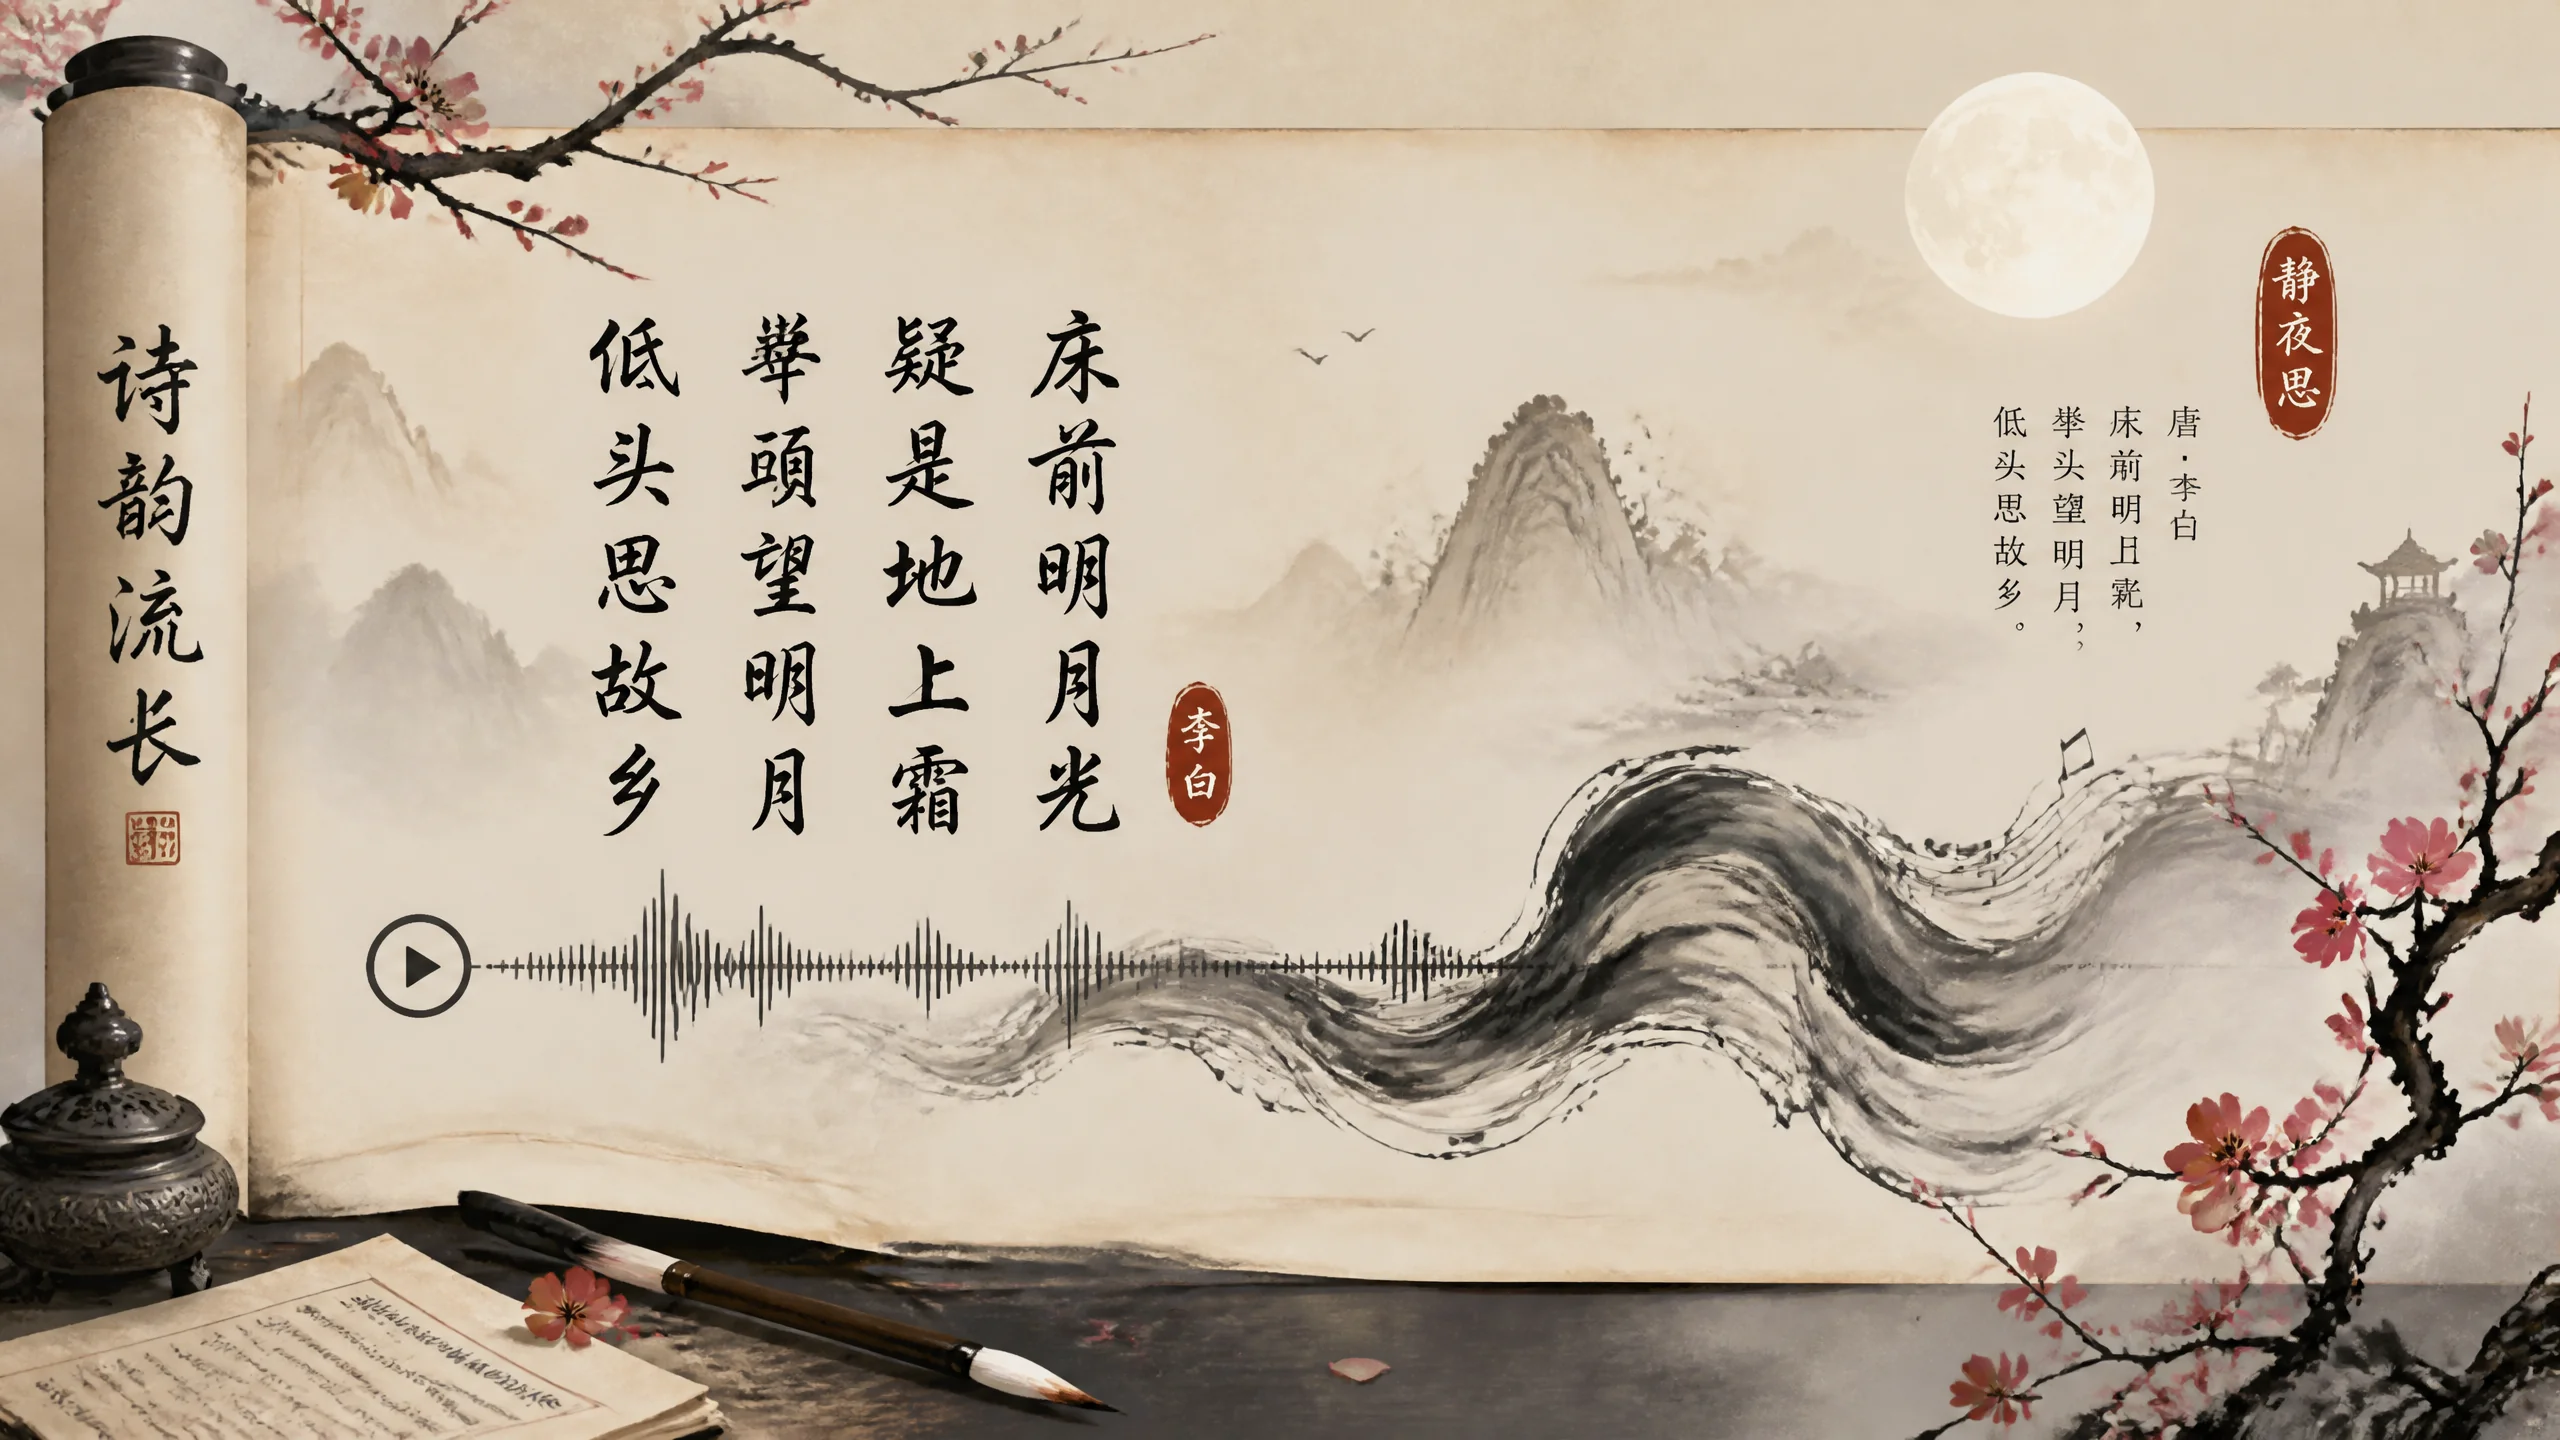 静夜思
唐·李白
床前明月光
疑是地上霜
舉頭望明月
低头思故乡
李白
床前明
舉头望明月，
低头思故乡。
诗韵流长